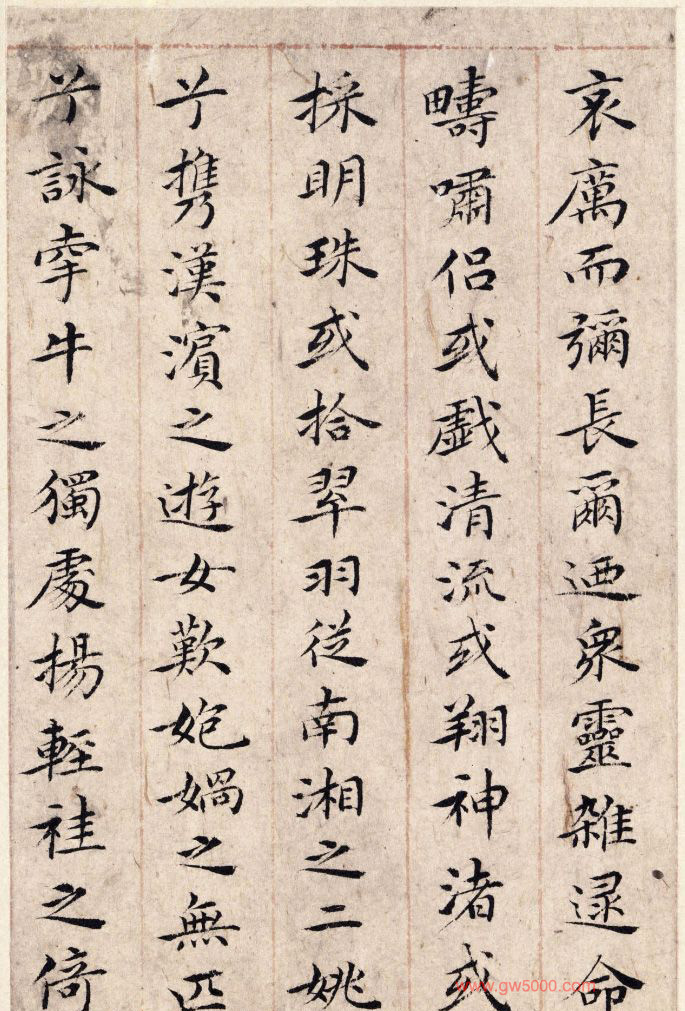 哀厲而彌長爾迺衆靈雜遝命
疇嘯侶或戲清流或翔神渚或
採明珠或拾翠羽從南湘之二姚
兮携漢濱之遊女歎匏媧之無匹
兮詠牽牛之獨處揚輕袿之倚
www.gw5000.com